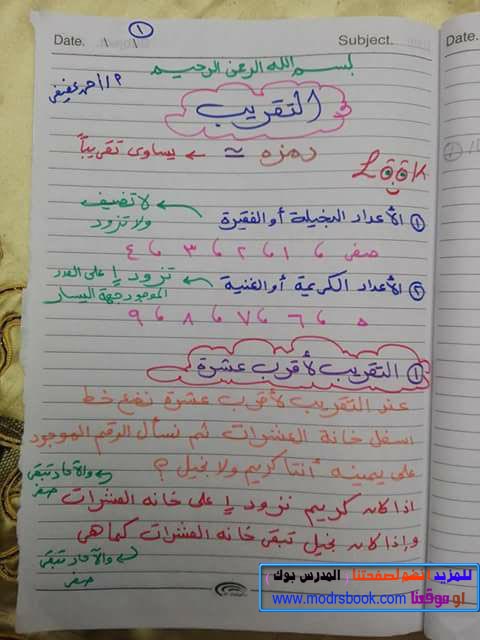 Date. \ \
①
Subject.
Date.
بسم الله الرحمن الرحيم
م/ أحمد عفيفي
التقريب
رمزه ≈ ← يساوى تقريباً
Look
① الأعداد البخيلة أو الفقيرة ← لا تضيف ولا تزود
صفر ، ١ ، ٢ ، ٣ ، ٤
② الأعداد الكريمة أو الغنية ← تزود ١ على العدد الموجود جهة اليسار
٥ ، ٦ ، ٧ ، ٨ ، ٩
① التقريب لأقرب عشرة
عند التقريب لأقرب عشرة نضع خط
اسفل خانة العشرات ثم نسأل الرقم الموجود
على يمينه أنت كريم ولا بخيل ؟
اذا كان كريم نزود ١ على خانه العشرات
والآحاد تبقى صفر
وإذا كان بخيل تبقى خانه العشرات كما هى
والآحاد تبقى صفر
للمزيد انضم لصفحتنا المدرس بوك
او موقعنا www.modrsbook.com